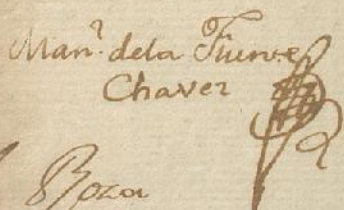 Man.l dela Fuente
Chavez
Boza